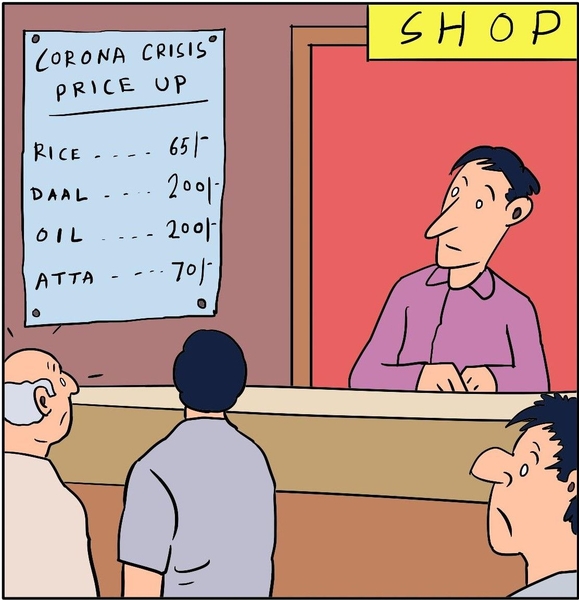 SHOP
CORONA CRISIS
PRICE UP
RICE .... 65/-
DAAL .... 200/-
OIL .... 200/-
ATTA .... 70/-